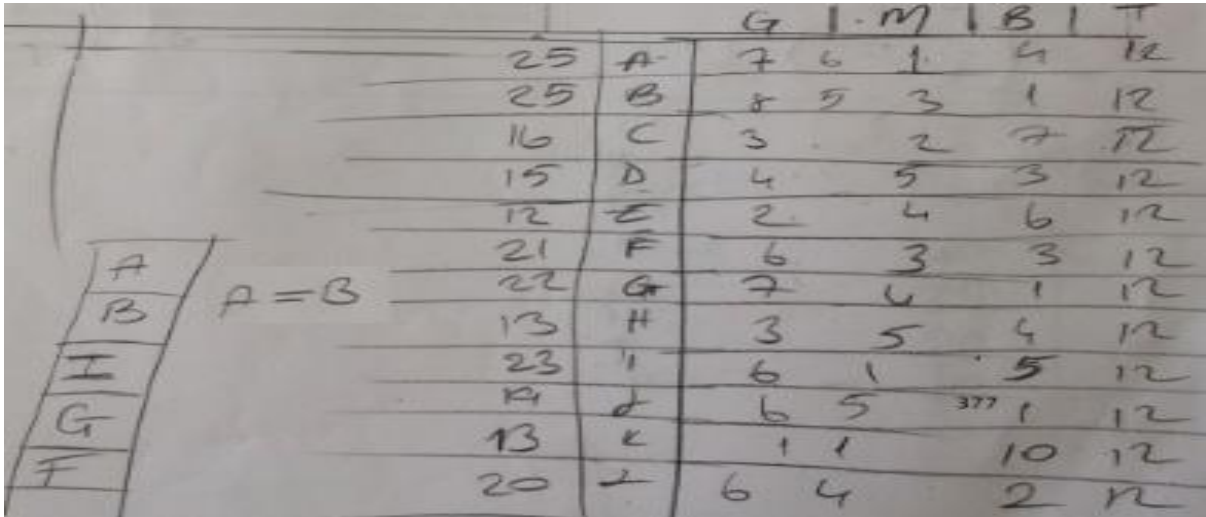 G | M | B | T
25 A 7 6 1 4 12
25 B 8 5 3 1 12
16 C 3 2 7 12
15 D 4 5 3 12
12 E 2 4 6 12
21 F 6 3 3 12
22 G 7 4 1 12
13 H 3 5 4 12
23 I 6 1 5 12
19 J 6 5 377 1 12
13 K 1 1 10 12
20 L 6 4 2 12
A
B
A = B
I
G
F